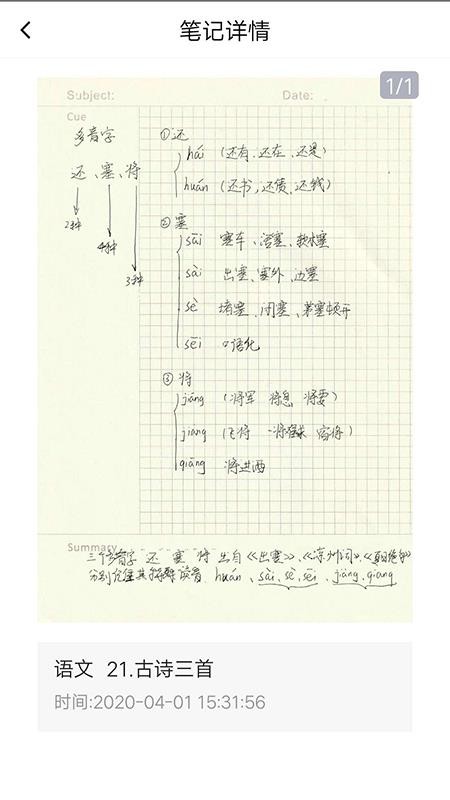 笔记详情
1/1
Subject:
Date:
Cue
多音字
还、塞、将
2种
4种
3种
①还
hái (还有、还在、还是)
huán (还书,还债、还钱)
②塞
sāi 塞车、活塞、软木塞
sài 出塞、塞外、边塞
sè 堵塞、闭塞、茅塞顿开
sēi 口语化
③将
jiāng (将军 将息 将要)
jiàng (飞将 一将难求
qiāng 将进酒
Summary
三个多音字 还 塞 将 出自《出塞》、《凉州词》、《夏日绝句》
分别 其 读音 huán、sài、sè、sēi、jiāng、qiang
语文 21.古诗三首
时间:2020-04-01 15:31:56